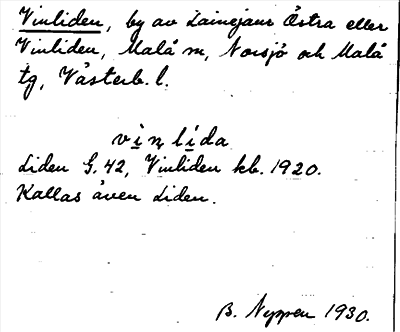 Vinliden, by av Lainejaur Östra eller
Vinliden, Malå sn, Norsjö och Malå
tg, Västerb. l.
vìnlída
Liden G. 42, Vinliden kb. 1920.
Kallas även Liden.
B. Nyppen 1930.